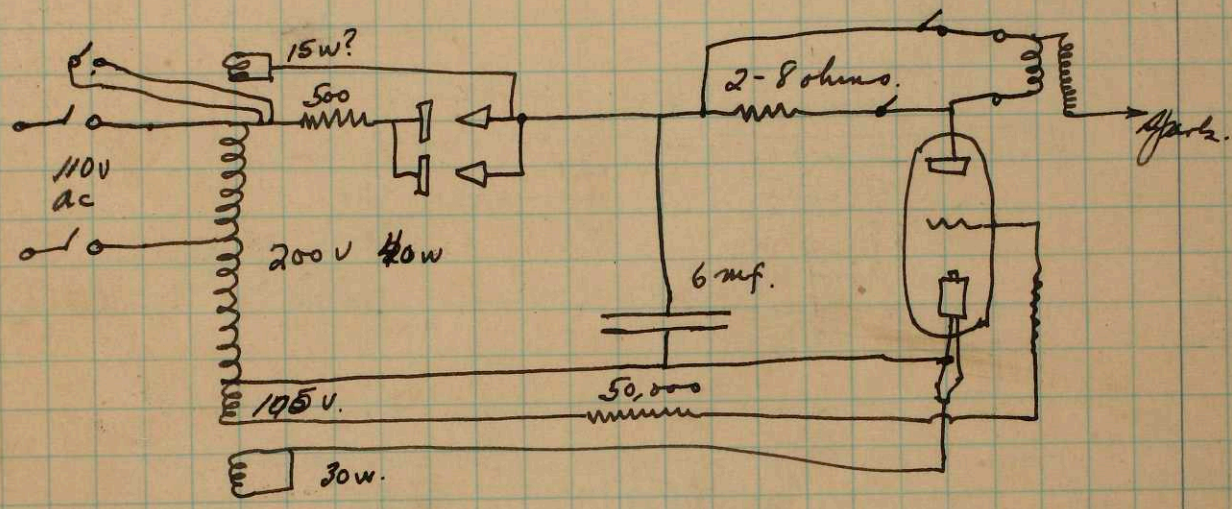 15w?
500
2-8 ohms.
Spark.
110v
ac
200v 40w
6 mf.
105v.
50,000
30w.